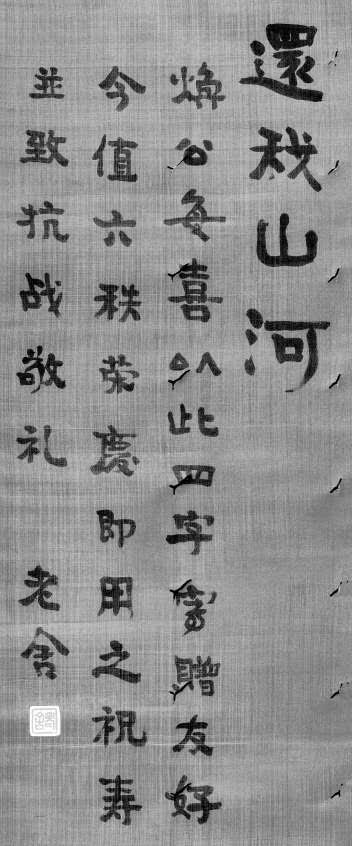 還我山河
煥公每喜以此四字寫贈友好
今值六秩荣慶即用之祝寿
並致抗战敬礼 老舍